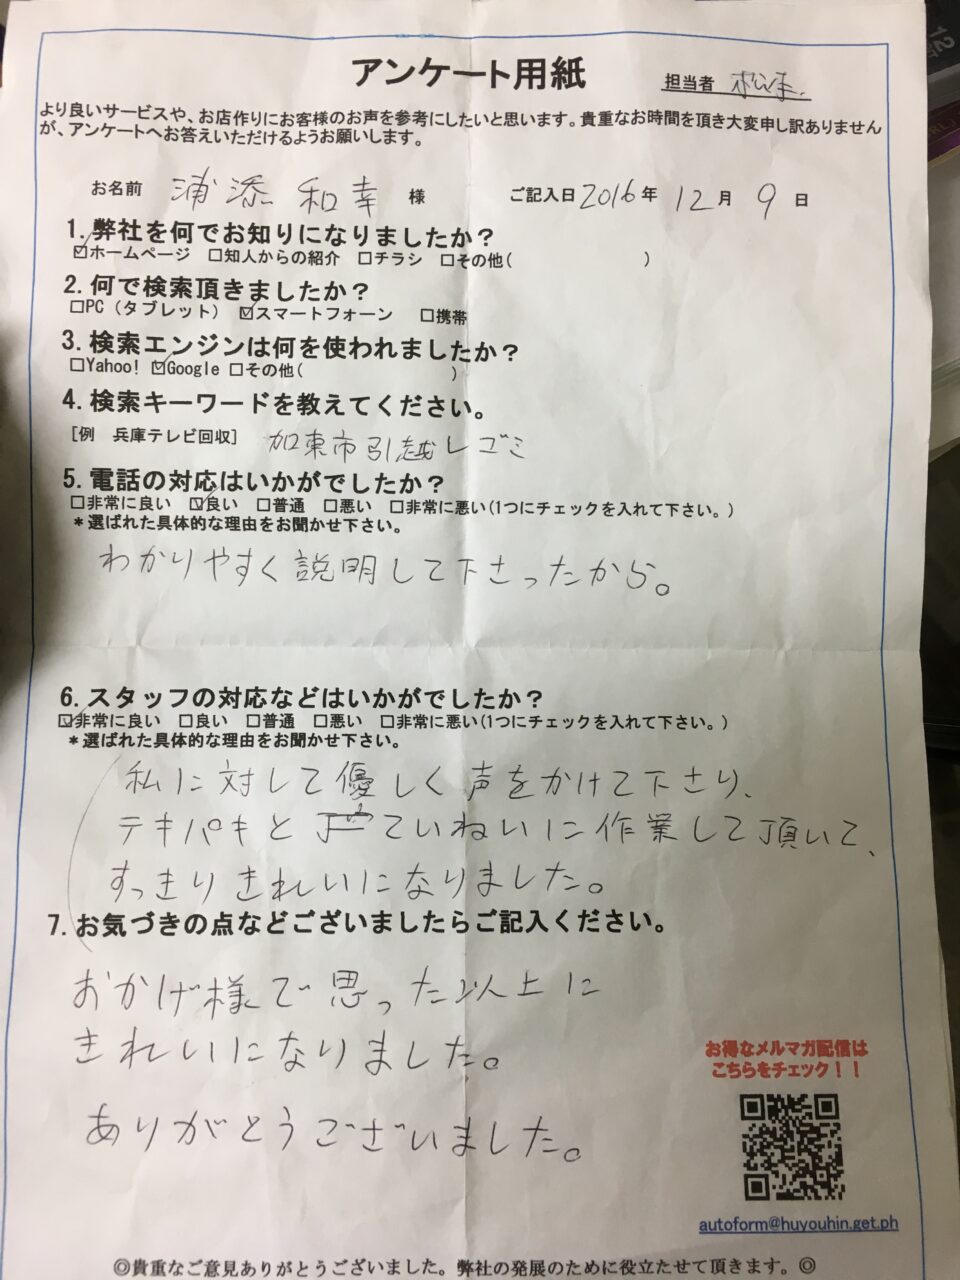 アンケート用紙
担当者
より良いサービスや、お店作りにお客様のお声を参考にしたいと思います。貴重なお時間を頂き大変申し訳ありません
が、アンケートへお答えいただけるようお願いします。
お名前 浦添 和幸 様 ご記入日 2016年 12月 9日
1.弊社を何でお知りになりましたか?
☑ホームページ □知人からの紹介 □チラシ □その他( )
2.何で検索頂きましたか?
□PC(タブレット) ☑スマートフォーン □携帯
3.検索エンジンは何を使われましたか?
□Yahoo! ☑Google □その他( )
4.検索キーワードを教えてください。
[例 兵庫テレビ回収] 加東市引越しゴミ
5.電話の対応はいかがでしたか?
□非常に良い ☑良い □普通 □悪い □非常に悪い(1つにチェックを入れて下さい。)
*選ばれた具体的な理由をお聞かせ下さい。
わかりやすく説明して下さったから。
6.スタッフの対応などはいかがでしたか?
☑非常に良い □良い □普通 □悪い □非常に悪い(1つにチェックを入れて下さい。)
*選ばれた具体的な理由をお聞かせ下さい。
私に対して優しく声をかけて下さり、
テキパキと ていねいに作業して頂いて、
すっきりきれいになりました。
7.お気づきの点などございましたらご記入ください。
おかげ様で思った以上に
きれいになりました。
ありがとうございました。
お得なメルマガ配信は
こちらをチェック!!
autoform@huyouhin.get.ph
◎貴重なご意見ありがとうございました。弊社の発展のために役立たせて頂きます。◎